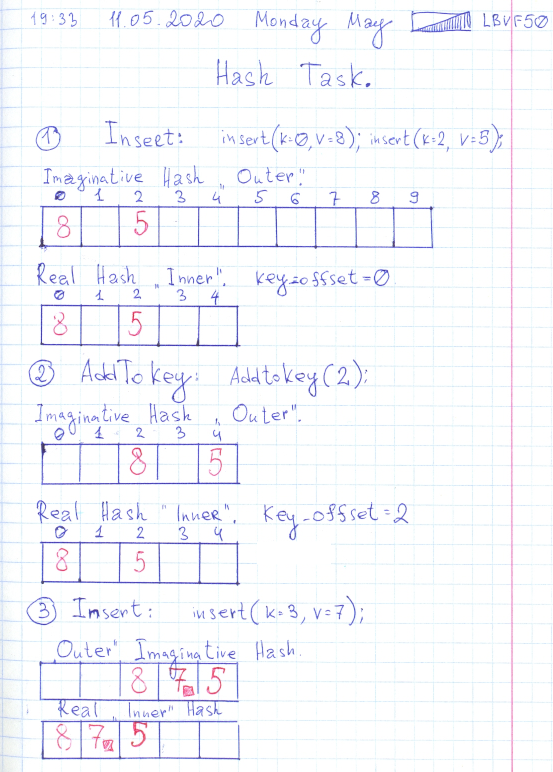 19:33 11.05.2020 Monday May LBVF50
Hash Task.
① Insert: insert(k=0, v=8); insert(k=2, v=5);
Imaginative Hash „Outer".
0 1 2 3 4 5 6 7 8 9
8 5
Real Hash „Inner". key-offset=0
0 1 2 3 4
8 5
② AddTokey: Addtokey(2);
Imaginative Hash „Outer".
0 1 2 3 4
8 5
Real Hash "Inner". Key-offset=2
0 1 2 3 4
8 5
③ Insert: insert(k=3, v=7);
„Outer" Imaginative Hash.
8 7 5
Real „Inner" Hash
8 7 5